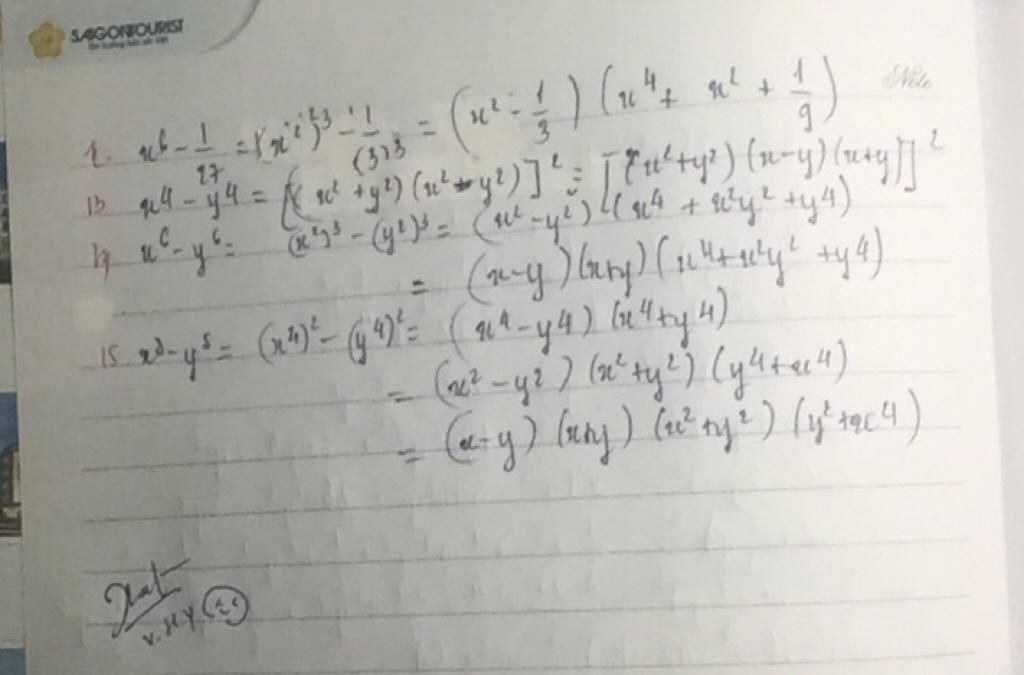 SAIGONTOURIST
Note
x⁶ - 1/27 = (x²)³ - 1/(3)³ = (x² - 1/3) (x⁴ + x² + 1/9)
13 x⁴ - y⁴ = [(x² + y²) (x² - y²)]² = [(x² + y²) (x-y) (x+y)]²
14 x⁶ - y⁶ = (x²)³ - (y²)³ = (x² - y²) (x⁴ + x²y² + y⁴)
= (x-y) (x+y) (x⁴ + x²y² + y⁴)
15. x⁸ - y⁸ = (x⁴)² - (y⁴)² = (x⁴ - y⁴) (x⁴ + y⁴)
= (x² - y²) (x² + y²) (y⁴ + x⁴)
= (x - y) (x+y) (x² + y²) (y² + x⁴)